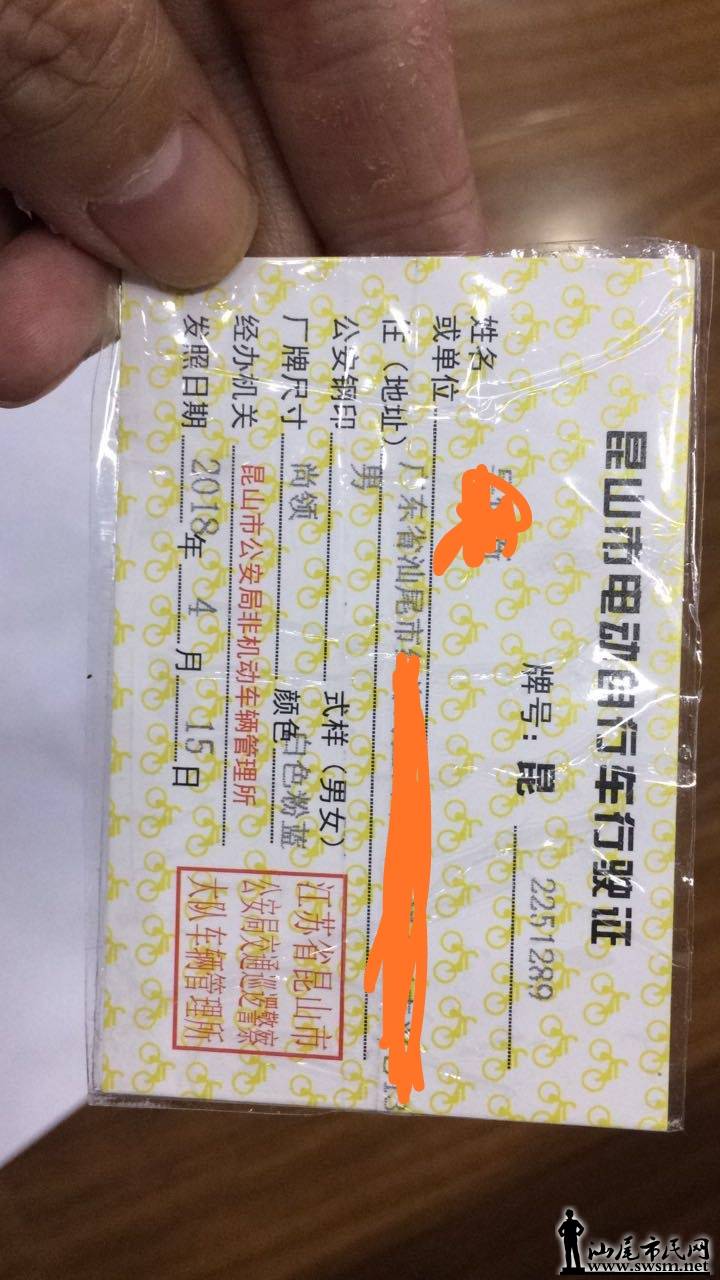 昆山市电动自行车行驶证
牌号：昆 2251289
姓名
或单位
住（地址） 广东省汕尾市
男
公安钢印 式样（男女）
厂牌尺寸 尚领 颜色 白色粉蓝
经办机关 昆山市公安局非机动车辆管理所
发照日期 2018年 4 月 15 日
江苏省昆山市
公安局交通巡逻警察
大队车辆管理所
汕尾市民网
www.swsm.net